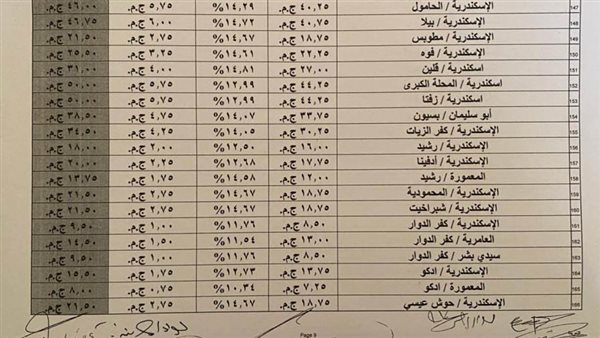 147 الإسكندرية / الحامول ٤٠,٢٥ ج.م. ١٤,٢٩% ٥,٧٥ ج.م. ٤٦,٠٠ ج.م.
148 الإسكندرية / بيلا ٤٠,٧٥ ج.م. ١٤,٧٢% ٦,٠٠ ج.م. ج.م.
149 الإسكندرية / مطوبس ١٨,٧٥ ج.م. ١٤,٦٧% ٢,٧٥ ج.م. ٢١,٥٠ ج.م.
150 الإسكندرية / فوه ٢٢,٢٥ ج.م. ١٤,٦١% ٣,٢٥ ج.م. ج.م.
151 اسكندرية / قلين ٢٧,٠٠ ج.م. ١٤,٨١% ٤,٠٠ ج.م. ٣١,٠٠ ج.م.
152 اسكندرية / المحلة الكبرى ٤٤,٢٥ ج.م. ١٢,٩٩% ٥,٧٥ ج.م. ٥٠,٠٠ ج.م.
153 اسكندرية / زفتا ٤٤,٢٥ ج.م. ١٢,٩٩% ٥,٧٥ ج.م. ٥٠,٠٠ ج.م.
154 أبو سليمان / بسيون ٣٣,٧٥ ج.م. ١٤,٠٧% ٤,٧٥ ج.م. ٣٨,٥٠ ج.م.
155 الإسكندرية / كفر الزيات ٣٠,٢٥ ج.م. ١٤,٠٥% ٤,٢٥ ج.م. ٣٤,٥٠ ج.م.
156 الإسكندرية / رشيد ١٦,٠٠ ج.م. ١٢,٥٠% ٢,٠٠ ج.م. ١٨,٠٠ ج.م.
157 الإسكندرية / أدفينا ١٧,٧٥ ج.م. ١٢,٦٨% ٢,٢٥ ج.م. ٢٠,٠٠ ج.م.
158 المعمورة / رشيد ١٢,٠٠ ج.م. ١٤,٥٨% ١,٧٥ ج.م. ١٣,٧٥ ج.م.
159 الإسكندرية / المحمودية ١٨,٧٥ ج.م. ١٤,٦٧% ٢,٧٥ ج.م. ٢١,٥٠ ج.م.
160 الإسكندرية / شبراخيت ١٨,٧٥ ج.م. ١٤,٦٧% ٢,٧٥ ج.م. ٢١,٥٠ ج.م.
161 الإسكندرية / كفر الدوار ٨,٥٠ ج.م. ١١,٧٦% ١,٠٠ ج.م. ٩,٥٠ ج.م.
162 العامرية / كفر الدوار ١٣,٠٠ ج.م. ١١,٥٤% ١,٥٠ ج.م. ١٤,٥٠ ج.م.
163 سيدي بشر / كفر الدوار ٨,٥٠ ج.م. ١١,٧٦% ١,٠٠ ج.م. ٩,٥٠ ج.م.
164 الإسكندرية / ادكو ١٣,٧٥ ج.م. ١٢,٧٣% ١,٧٥ ج.م. ١٥,٥٠ ج.م.
165 المعمورة / ادكو ٧,٢٥ ج.م. ١٠,٣٤% ٠,٧٥ ج.م. ٨,٠٠ ج.م.
166 الإسكندرية / حوش عيسي ١٨,٧٥ ج.م. ١٤,٦٧% ٢,٧٥ ج.م. ٢١,٥٠ ج.م.
Page 9